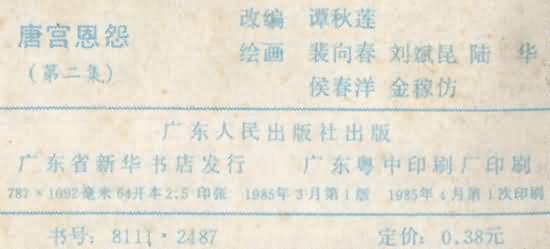 唐宫恩怨
(第二集)
改编 谭秋莲
绘画 裴向春 刘斌昆 陆 华
侯春洋 金稼仿
广东人民出版社出版
广东省新华书店发行 广东粤中印刷厂印刷
787×1092毫米64开本2.5印张 1985年3月第1版 1985年4月第1次印刷
书号: 8111·2487 定价: 0.38元